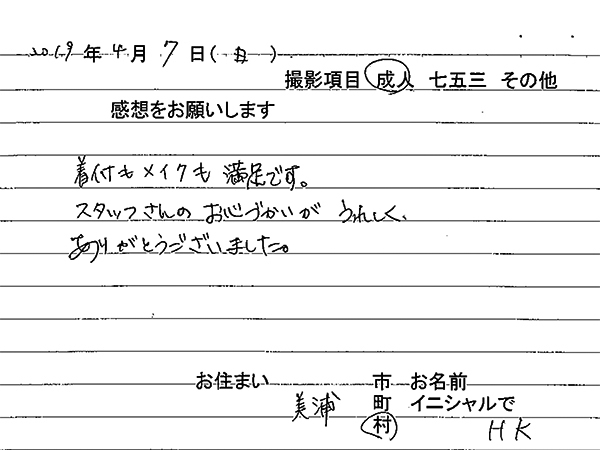 2019年4月7日(日)
撮影項目 成人 七五三 その他
感想をお願いします
着付もメイクも満足です。
スタッフさんのお心づかいがうれしく、
ありがとうございました。
お住まい 市 お名前
美浦 町 イニシャルで
村 HK